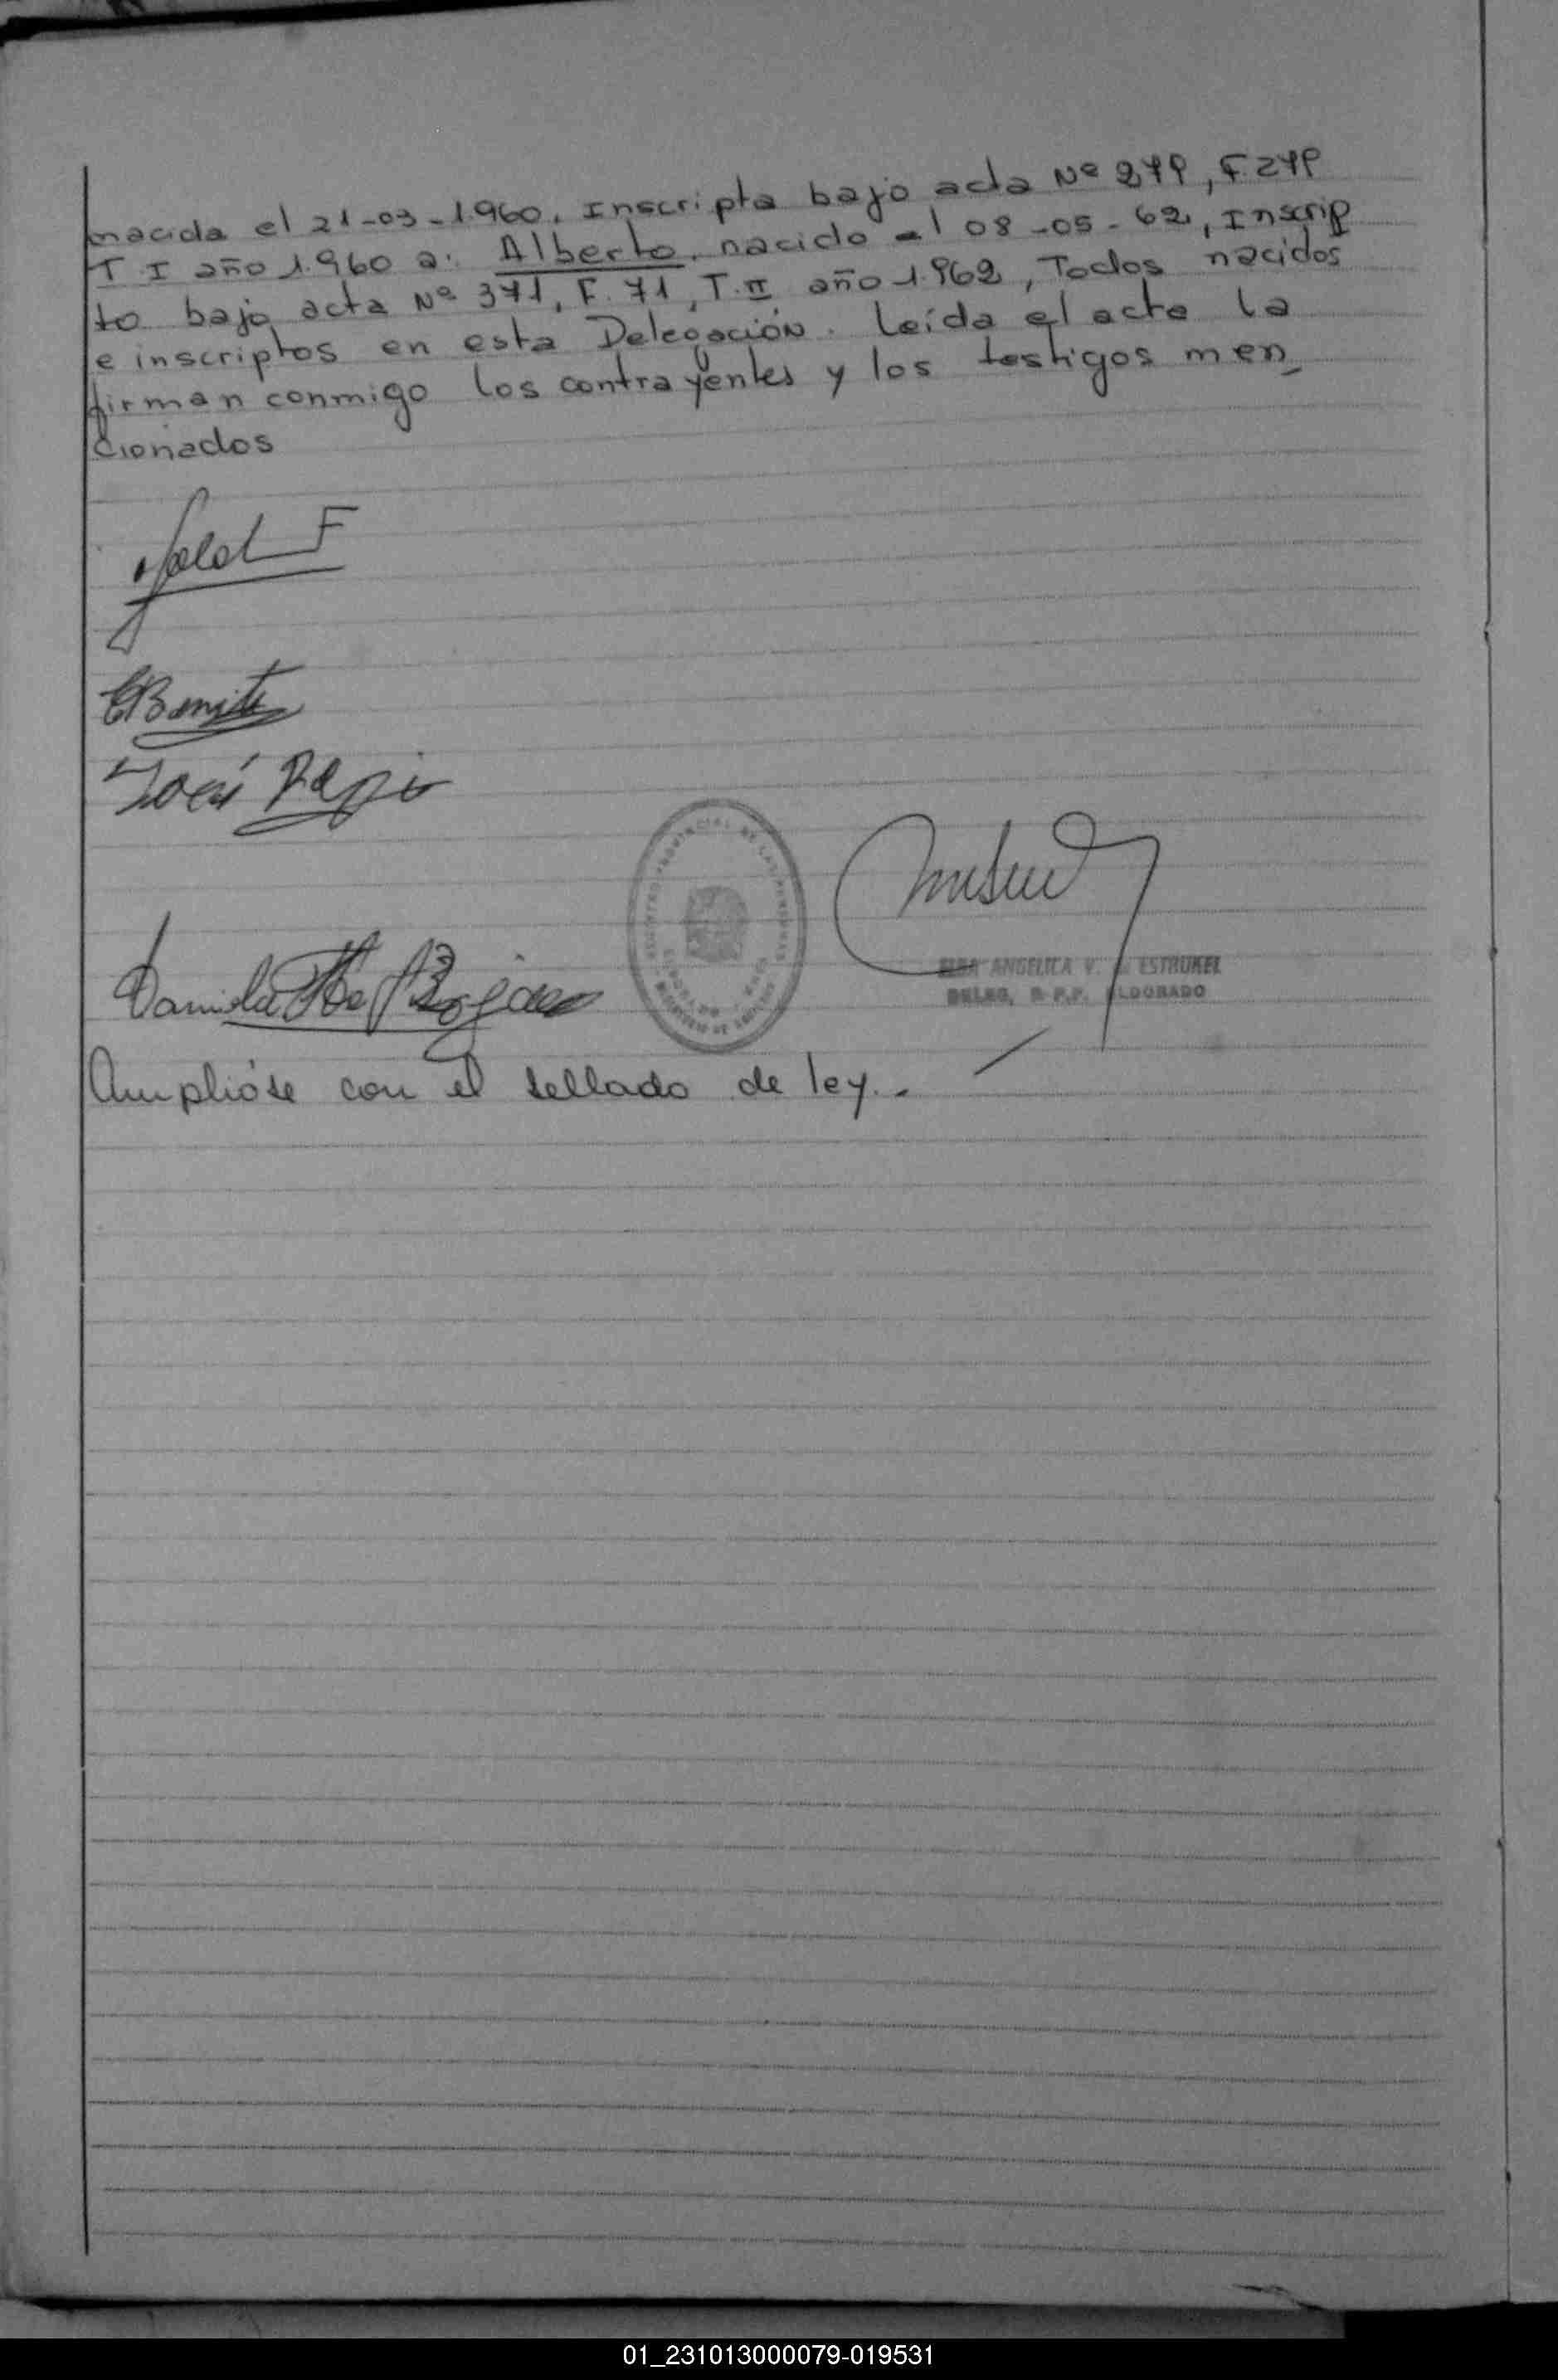 nacida el 21-03-1.960. Inscripta bajo acta Nº 279, F. 279
T. I año 1.960 a: Alberto, nacido el 08-05-62, Inscrip
to bajo acta Nº 371, F. 71, T. II año 1.962, Todos nacidos
e inscriptos en esta Delegación. Leída el acta la
firman conmigo los contrayentes y los testigos men
cionados
F
José
ANGELICA V. ESTRUKEL
DELEG. R.P.P. ELDORADO
Amplióse con el sellado de ley.-
01_231013000079-019531